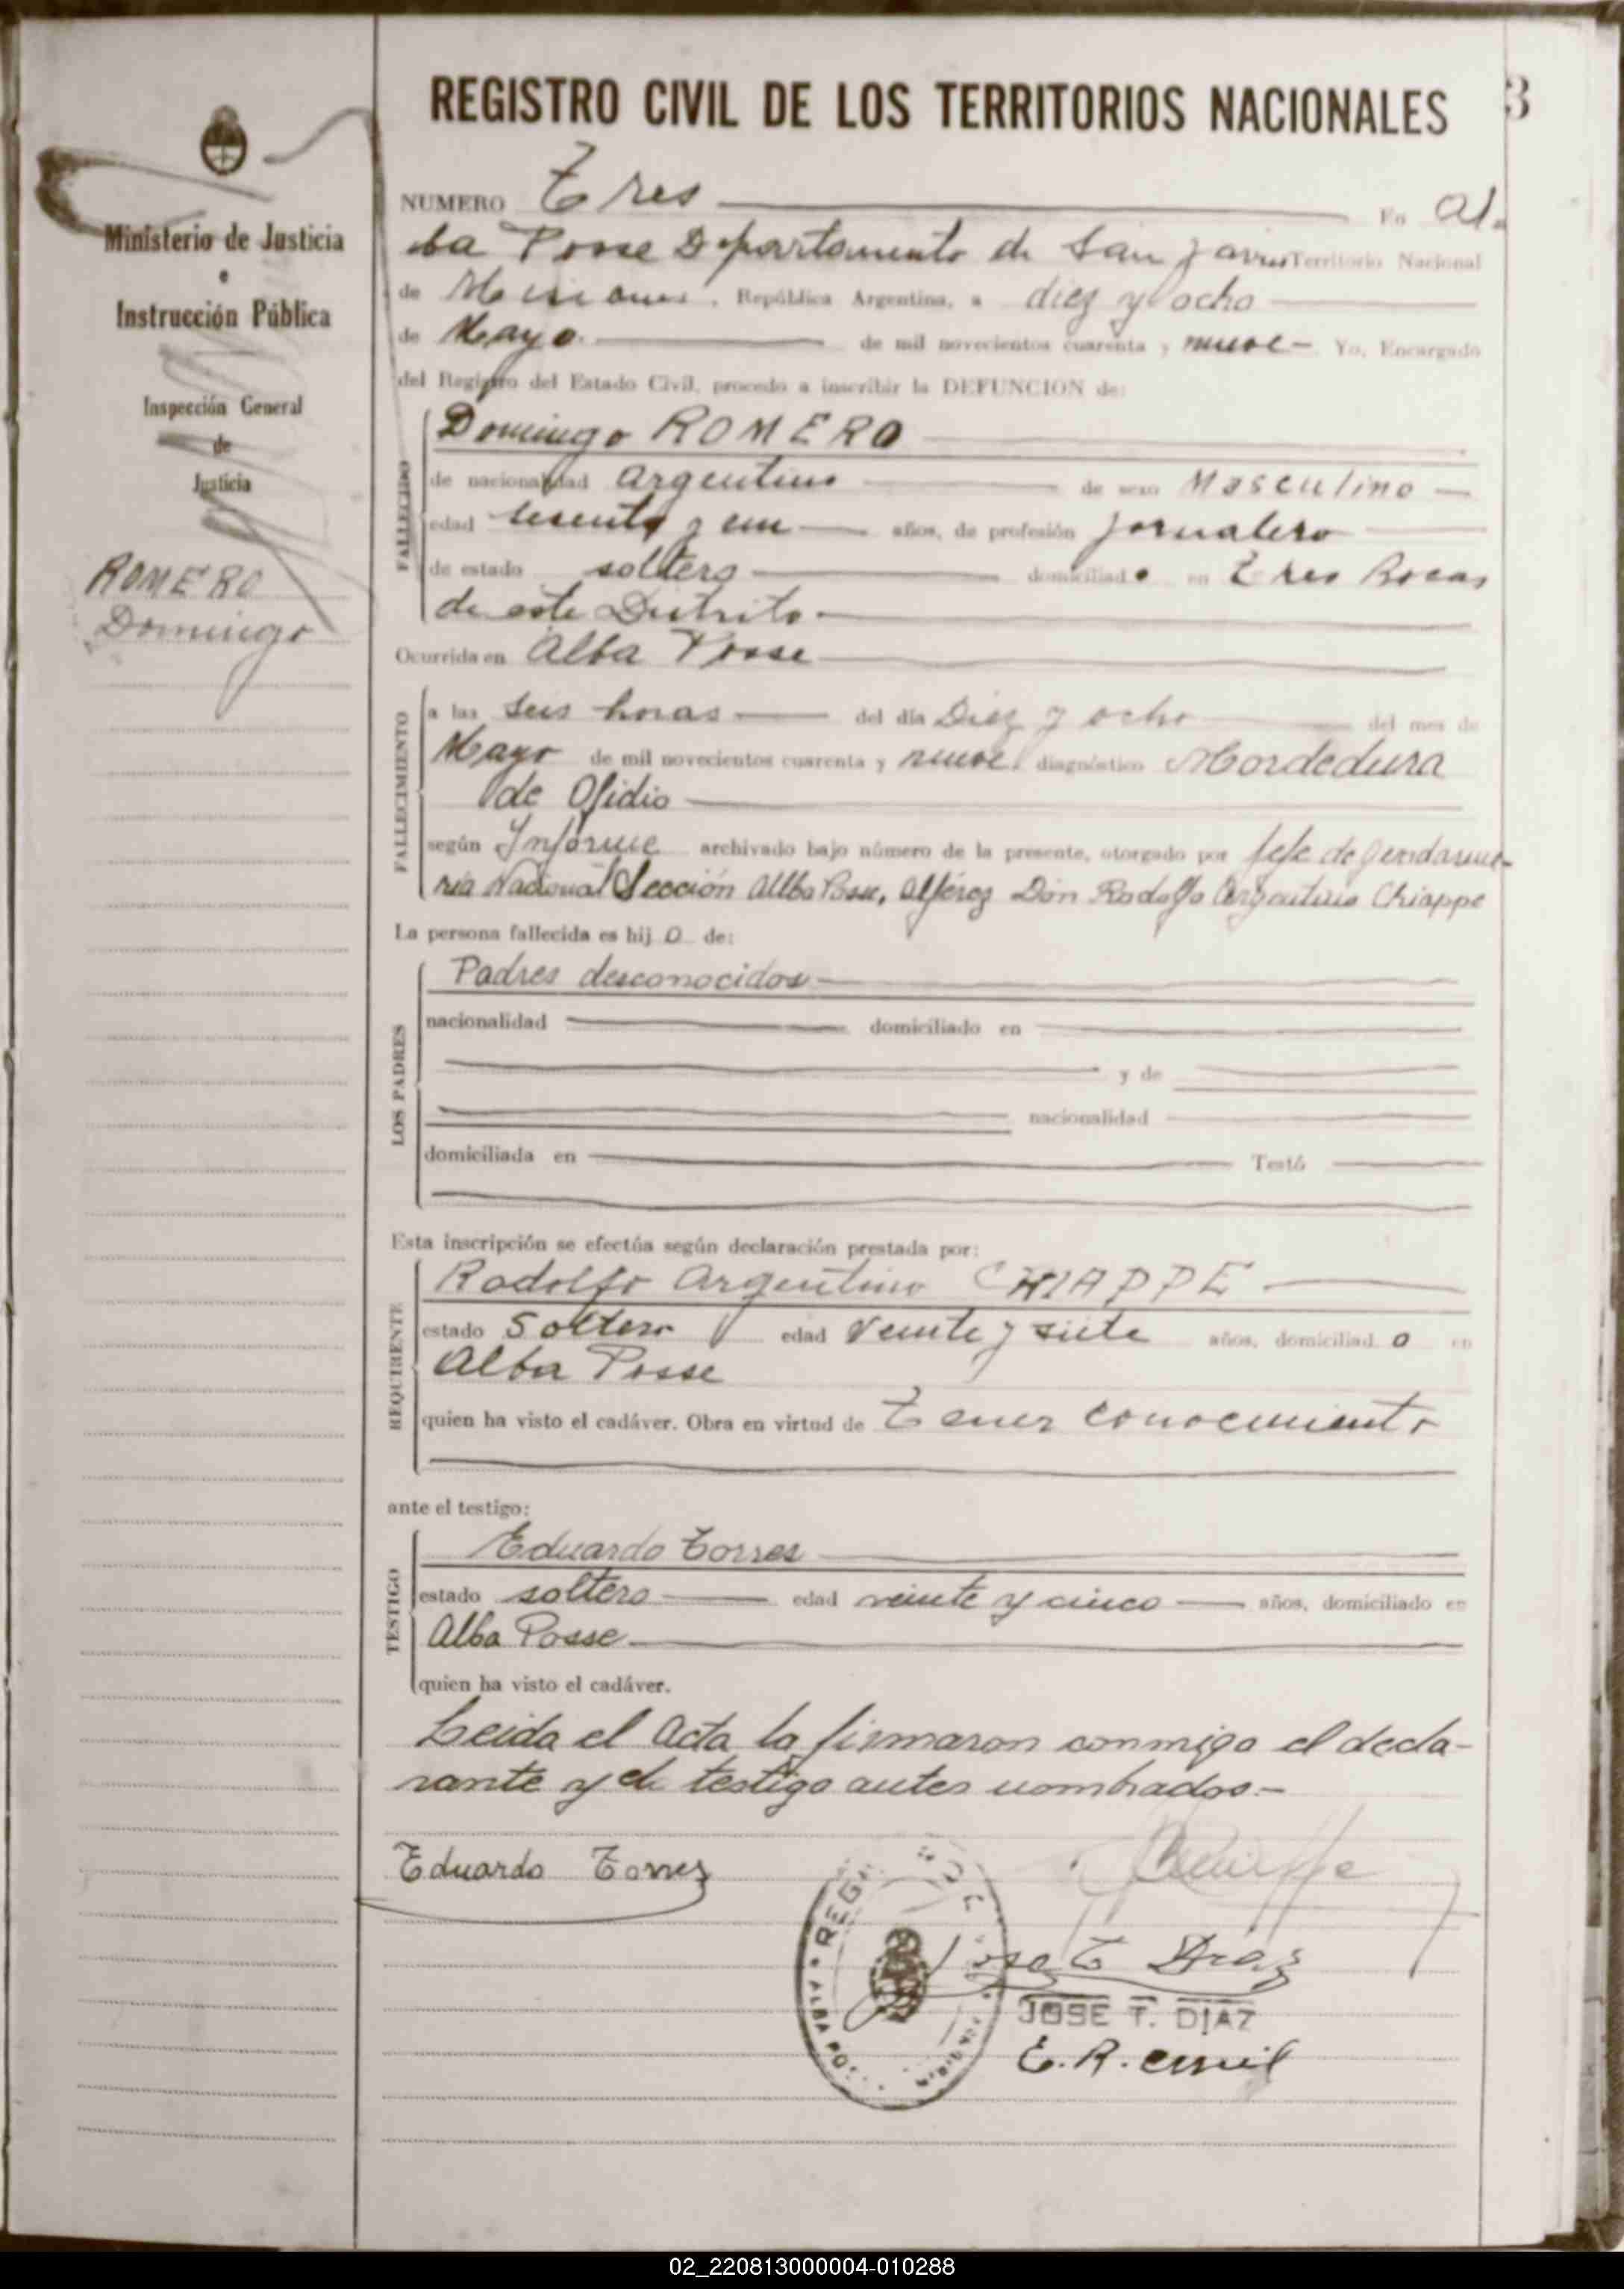 REGISTRO CIVIL DE LOS TERRITORIOS NACIONALES
3
Ministerio de Justicia
e
Instrucción Pública
Inspección General
de
Justicia
ROMERO
Domingo
NUMERO Tres En Al-
ba Posse Departamento de San Javier Territorio Nacional
de Misiones, República Argentina, a diez y ocho
de Mayo de mil novecientos cuarenta y nueve - Yo, Encargado
del Registro del Estado Civil, procedo a inscribir la DEFUNCION de:
FALLECIDO
Domingo ROMERO
de nacionalidad argentino de sexo Masculino
edad sesenta y un años, de profesión jornalero
de estado soltero domiciliado en Tres Bocas
de este Distrito
Ocurrida en Alba Posse
FALLECIMIENTO
a las seis horas del día Diez y ocho del mes de
Mayo de mil novecientos cuarenta y nueve diagnóstico Mordedura
de Ofidio
según Informe archivado bajo número de la presente, otorgado por Jefe de Gendarme-
ría Nacional Sección Alba Posse, Alférez Don Rodolfo Argentino Chiappe
La persona fallecida es hijo de:
LOS PADRES
Padres desconocidos
nacionalidad domiciliado en
y de
nacionalidad
domiciliada en Testó
Esta inscripción se efectúa según declaración prestada por:
REQUIRENTE
Rodolfo Argentino CHIAPPE
estado Soltero edad Veinte y siete años, domiciliado en
Alba Posse
quien ha visto el cadáver. Obra en virtud de Tener conocimiento
ante el testigo:
TESTIGO
Eduardo Torres
estado soltero edad veinte y cinco años, domiciliado en
Alba Posse
quien ha visto el cadáver.
Leida el Acta la firmaron conmigo el decla-
rante y el testigo antes nombrados.-
Eduardo Torres
Chiappe
Jose T Diaz
JOSE T. DIAZ
E. R. Civil
REG
ALBA PO
02_220813000004-010288